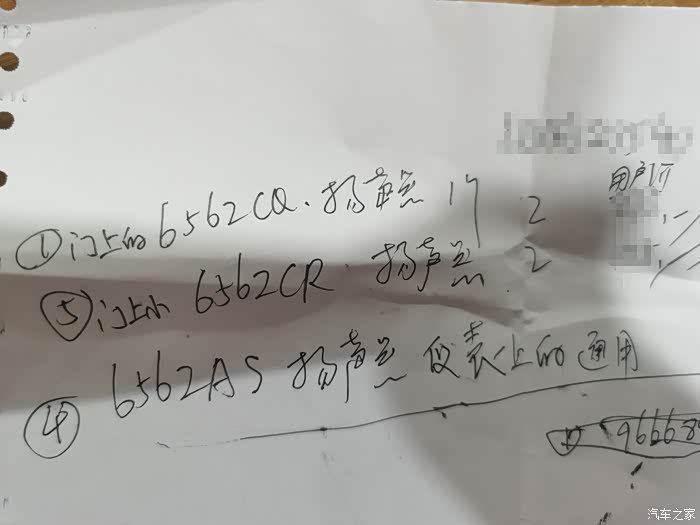 用户
① 门上的 6562CQ. 扬声器 2
⑤ 门上 6562CR 扬声器 2
④ 6562AS 扬声器 仪表上的通用
96668
汽车之家